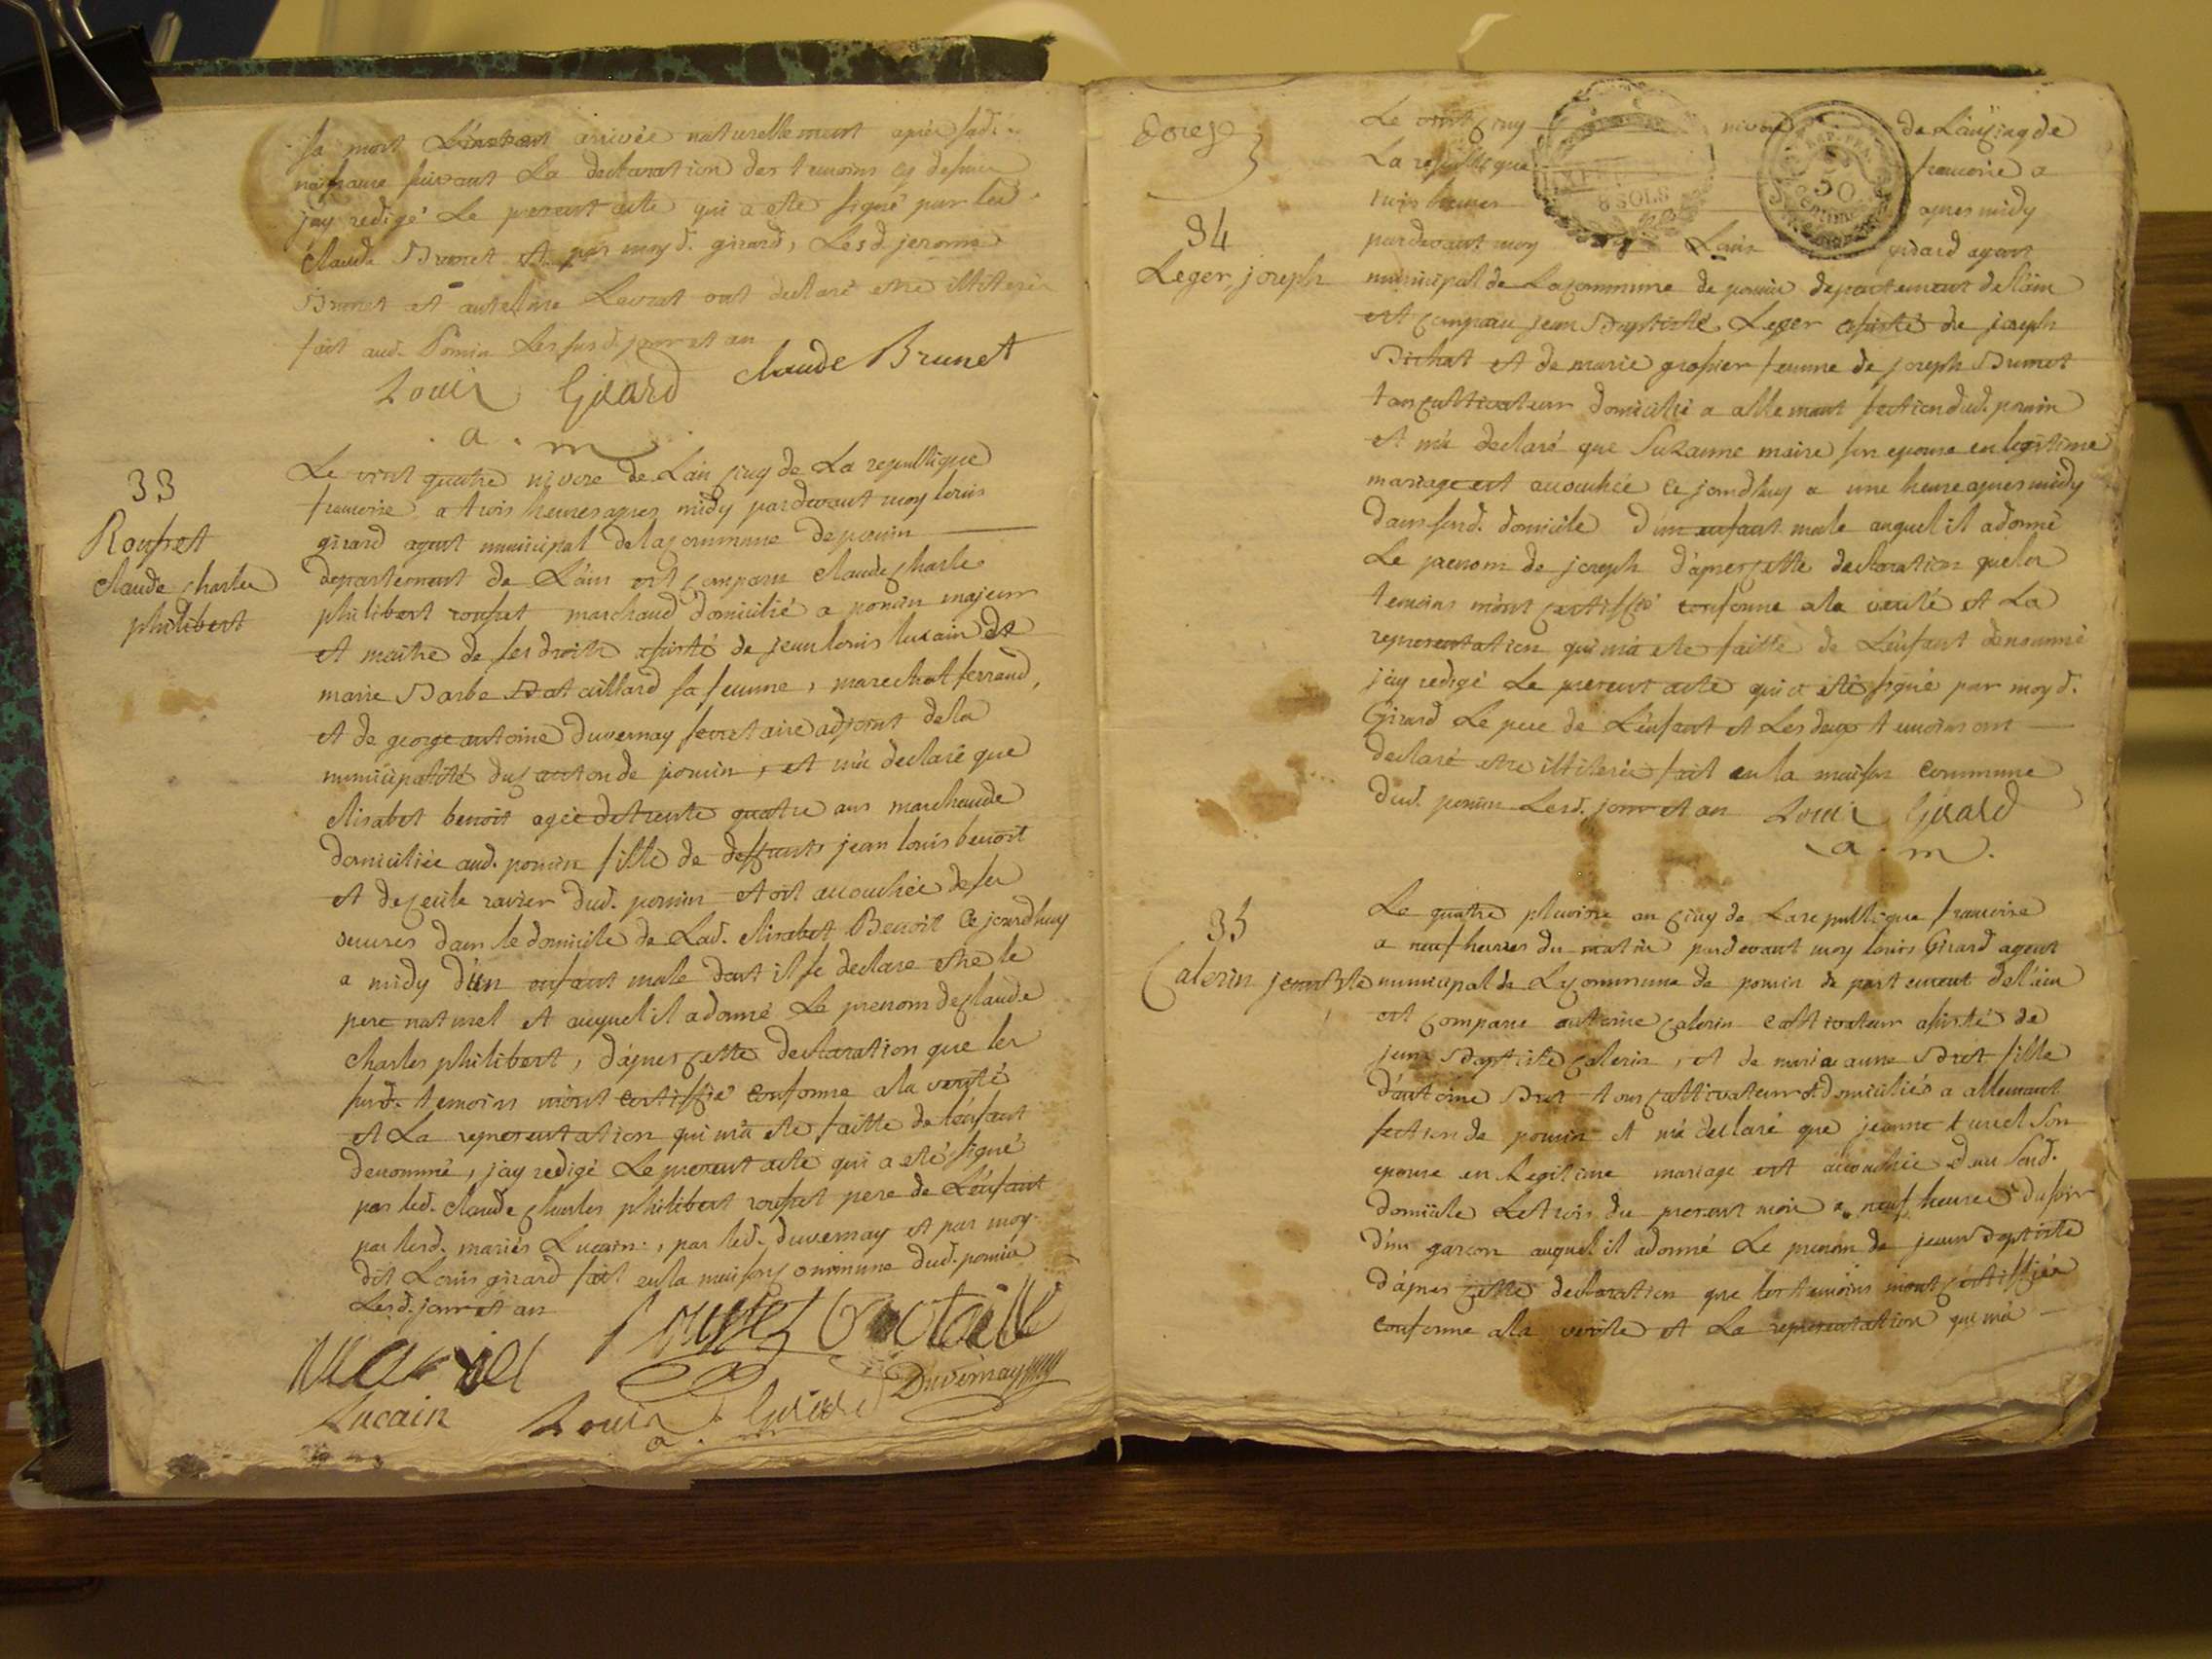 sa mort L'instant arrivée naturellement après sadte
naissance suivant La declaration des temoins cy dessus
jay redigé Le present acte qui a ete signé par led.
Claude Brunet et par moy d. girard, Lesd. jerome
Brunet et anthelme Levrat ont declaré etre illiterés
fait aud. Poncin Les susd. jour et an
Louis Girard claude Brunet
a. m
33
Rousset
claude charles
philibert
Le vint quatre nivose de L'an cinq de La republique
francoise a trois heures apres midy pardevant moy louis
girard agent municipal de la commune de poncin
departement de L'ain est comparu claude charles
philibert rousset marchand domicilié a poncin majeur
et maitre de ses droits assisté de jean louis lucain et
marie Barbe Bataillard sa femme, marechal ferrand,
et de george antoine duvernay secretaire adjoint de la
municipalité du canton de poncin, et m'a declaré que
elisabet benoit agée de trente quatre ans marchande
domiciliée aud. poncin fille de deffunts jean louis benoit
et de cecile ravier dud. poncin etoit accouchée de ses
oeuvres dans le domicile de Lad. elisabet Benoit Ce jourdhuy
a midy d'un enfant male dont il se declare etre le
pere naturel et auquel il a donné Le prenom de claude
charles philibert, d'apres cette declaration que les
susd. temoins m'ont certiffié conforme a la verité
et La representation qui m'a ete faitte de l'enfant
denommé, jay redigé Le present acte qui a eté signé
par led. claude charles philibert rousset pere de L'enfant
par lesd. mariés Lucain, par led. duvernay et par moy
dit Louis girard fait en la maison commune dud. poncin
Lesd. jour et an
Rousset Bataill
Duvernay
Lucain Louis Girard
a. m
34
Leger joseph
Le vint cinq nivose de L'an cinq de
La republique francoise a
trois heures apres midy
pardevant moy Louis girard agent
municipal de La commune de poncin departement de L'ain
est comparu jean Baptiste Leger assisté de joseph
Bichat et de marie grosner femme de joseph Brunet
tous cultivateur domicilié a allemant section dud. poncin
et m'a declaré que Suzanne maire son epouse en legitime
mariage est accouchée ce jourdhuy a une heure apres midy
dans sond. domicile d'un enfant male auquel il a donné
Le prenom de joseph d'apres cette declaration que les
temoins m'ont certiffié conforme a la verité et La
representation qui m'a ete faitte de L'enfant denommé
j'ay redigé Le present acte qui a eté signé par moy d.
Girard Le pere de L'enfant et Les deux temoins ont
declaré etre illiterés fait en la maison commune
dud. poncin Lesd. jour et an Louis Girard
a. m.
35
Calerin jean Bte
Le quatre pluviose an cinq de La republique francoise
a neuf heures du matin pardevant moy louis Girard agent
municipal de La commune de poncin departement de l'ain
est comparu antoine calerin cultivateur assisté de
jean Baptiste calerin, et de marie anne Bret fille
d'antoine Bret tous cultivateur et domiciliés a allemant
section de poncin et m'a declaré que jeanne turel Son
epouse en Legitime mariage est accouchée dans Sond.
domicile Le trois du present mois a neuf heures du soir
d'un garçon auquel il a donné Le prenom de jean Baptiste
d'apres cette declaration que les temoins m'ont certiffiée
conforme a la verite et La representation qui m'a
8 SOLS
50
Centimes